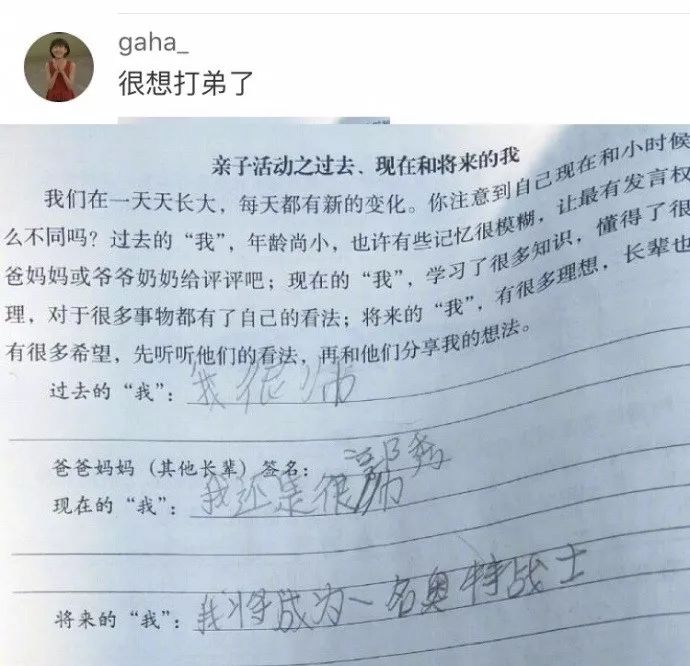 gaha_
很想打弟了
亲子活动之过去、现在和将来的我
我们在一天天长大，每天都有新的变化。你注意到自己现在和小时候
么不同吗？过去的“我”，年龄尚小，也许有些记忆很模糊，让最有发言权
爸妈妈或爷爷奶奶给评评吧；现在的“我”，学习了很多知识，懂得了很
理，对于很多事物都有了自己的看法；将来的“我”，有很多理想，长辈也
有很多希望，先听听他们的看法，再和他们分享我的想法。
过去的“我”：我很帅
爸爸妈妈（其他长辈）签名：
现在的“我”：我还是很帅
将来的“我”：我将成为一名奥特战士